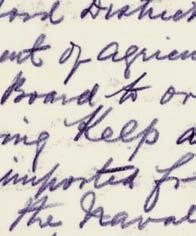 District
of Agricu
Board to or
ing Kelp a
imported fr
the Naval